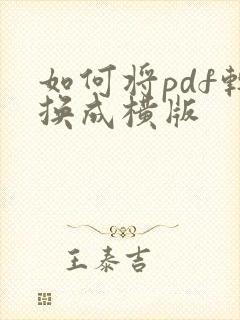 如何将pdf转
换成横版
王泰吉